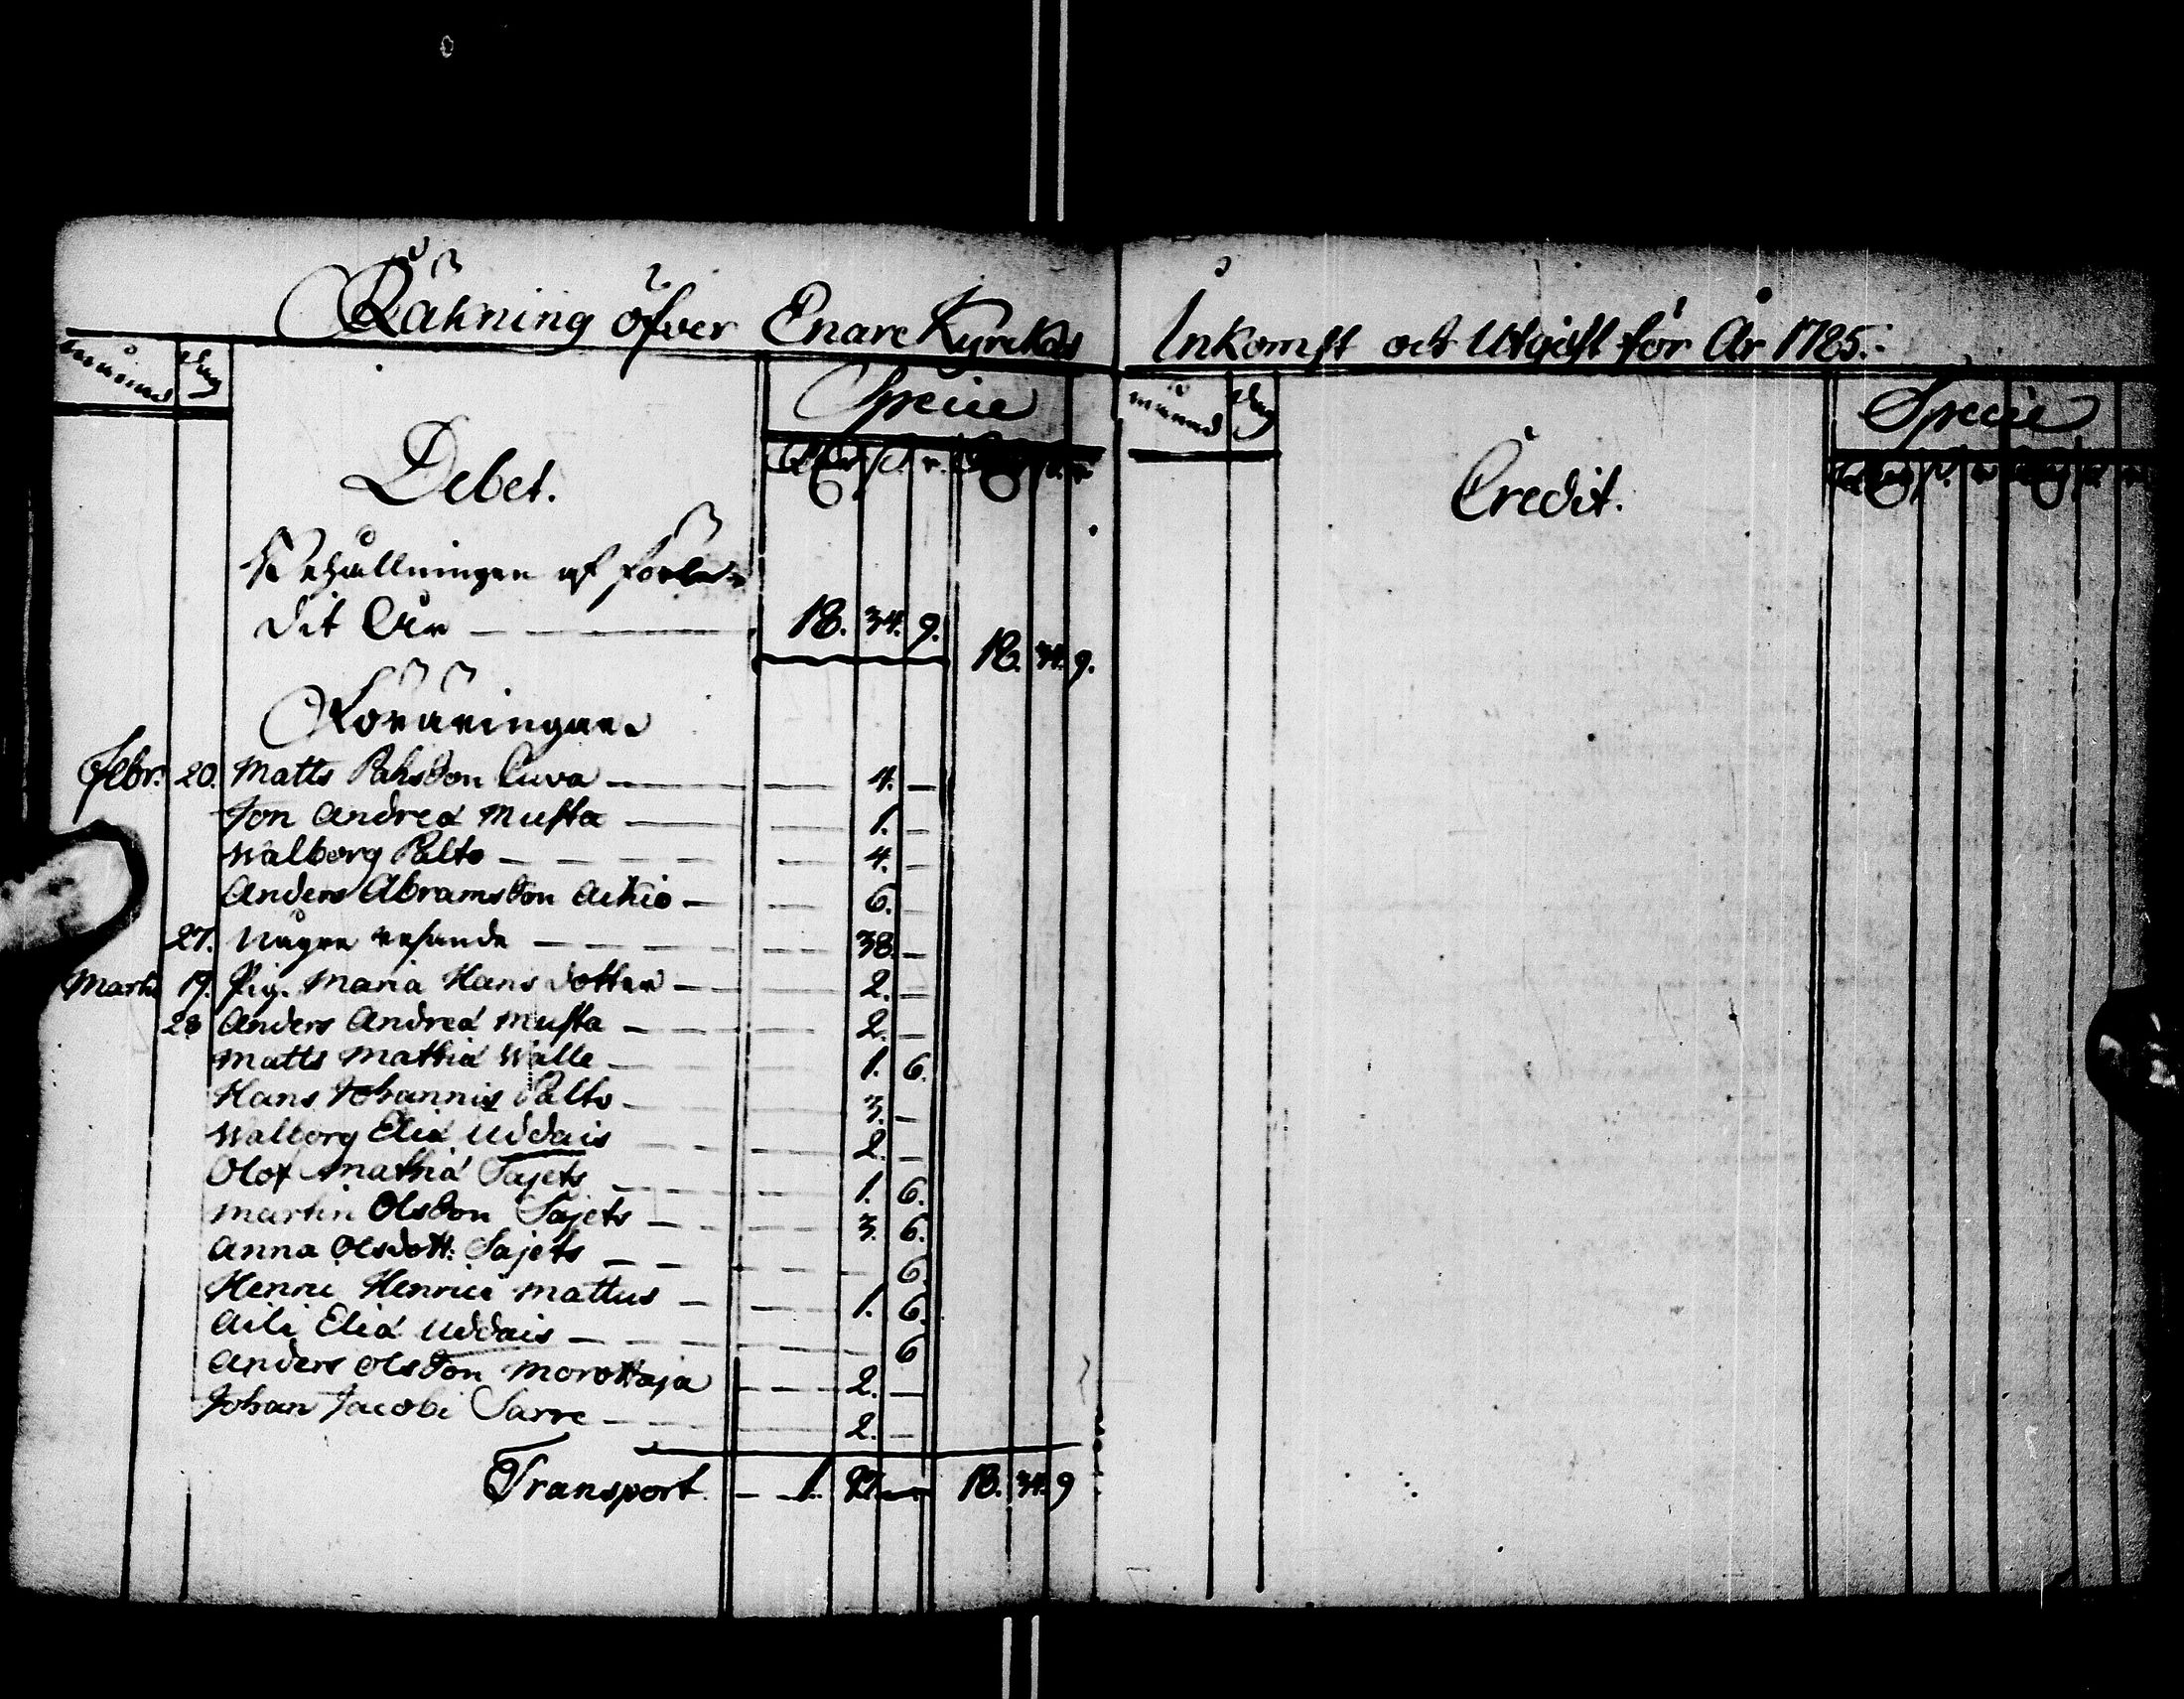 Räkning öfver Enare Kyrckas Inkomst och Utgift för År 1785.
månad Dag
Specie
Debet.
Behållningen af förle-
dit År 18. 34. 9. 18. 34. 9.
Föräringar
Febr. 20. Matts Pahsson Cuva 4. —
Jon Andreæ Musta 1. —
Walborg Palto 4. —
Anders Abramsson Aikio 6. —
27. Någre resande 38. —
Marti 19. Pig. Maria Hans dotter 2. —
28 Anders Andreæ Musta 2. —
Matts Mathiæ Walle 1. 6.
Hans Johannis Palto 3. —
Walborg Eliæ Uddais 2. —
Olof Mathiæ Sajets 1. 6.
Martin Olsson Sajets 3. 6.
Anna Olsdott: Sajets 6.
Henric Henrici Mattus 1. 6.
Aili Eliæ Uddais 6
Anders Olsson Morottaja 2. —
Johan Jacobi Sarre 2. —
Transport. 1. 27. — 18. 34. 9
månad Dag
Specie
Credit.